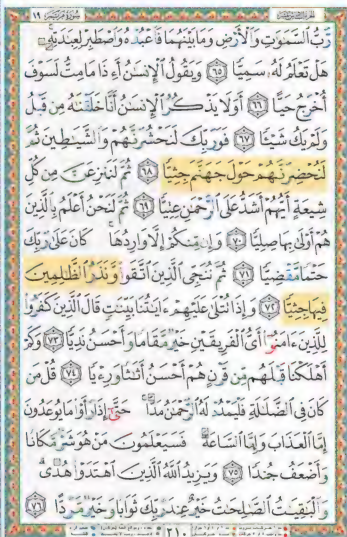 الجزء السادس عشر سورة مريم ١٩
رَّبُّ ٱلسَّمَٰوَٰتِ وَٱلۡأَرۡضِ وَمَا بَيۡنَهُمَا فَٱعۡبُدۡهُ وَٱصۡطَبِرۡ لِعِبَٰدَتِهِۦۚ
هَلۡ تَعۡلَمُ لَهُۥ سَمِيّٗا ٦٥ وَيَقُولُ ٱلۡإِنسَٰنُ أَءِذَا مَا مِتُّ لَسَوۡفَ
أُخۡرَجُ حَيًّا ٦٦ أَوَلَا يَذۡكُرُ ٱلۡإِنسَٰنُ أَنَّا خَلَقۡنَٰهُ مِن قَبۡلُ
وَلَمۡ يَكُ شَيۡـٔٗا ٦٧ فَوَرَبِّكَ لَنَحۡشُرَنَّهُمۡ وَٱلشَّيَٰطِينَ ثُمَّ
لَنُحۡضِرَنَّهُمۡ حَوۡلَ جَهَنَّمَ جِثِيّٗا ٦٨ ثُمَّ لَنَنزِعَنَّ مِن كُلِّ
شِيعَةٍ أَيُّهُمۡ أَشَدُّ عَلَى ٱلرَّحۡمَٰنِ عِتِيّٗا ٦٩ ثُمَّ لَنَحۡنُ أَعۡلَمُ بِٱلَّذِينَ
هُمۡ أَوۡلَىٰ بِهَا صِلِيّٗا ٧٠ وَإِن مِّنكُمۡ إِلَّا وَارِدُهَاۚ كَانَ عَلَىٰ رَبِّكَ
حَتۡمٗا مَّقۡضِيّٗا ٧١ ثُمَّ نُنَجِّي ٱلَّذِينَ ٱتَّقَواْ وَّنَذَرُ ٱلظَّٰلِمِينَ
فِيهَا جِثِيّٗا ٧٢ وَإِذَا تُتۡلَىٰ عَلَيۡهِمۡ ءَايَٰتُنَا بَيِّنَٰتٖ قَالَ ٱلَّذِينَ كَفَرُواْ
لِلَّذِينَ ءَامَنُوٓاْ أَيُّ ٱلۡفَرِيقَيۡنِ خَيۡرٞ مَّقَامٗا وَأَحۡسَنُ نَدِيّٗا ٧٣ وَكَمۡ
أَهۡلَكۡنَا قَبۡلَهُم مِّن قَرۡنٍ هُمۡ أَحۡسَنُ أَثَٰثٗا وَرِءۡيٗا ٧٤ قُلۡ مَن
كَانَ فِي ٱلضَّلَٰلَةِ فَلۡيَمۡدُدۡ لَهُ ٱلرَّحۡمَٰنُ مَدًّاۚ حَتَّىٰٓ إِذَا رَأَوۡاْ مَا يُوعَدُونَ
إِمَّا ٱلۡعَذَابَ وَإِمَّا ٱلسَّاعَةَ فَسَيَعۡلَمُونَ مَنۡ هُوَ شَرّٞ مَّكَانٗا
وَأَضۡعَفُ جُندٗا ٧٥ وَيَزِيدُ ٱللَّهُ ٱلَّذِينَ ٱهۡتَدَوۡاْ هُدٗىۗ
وَٱلۡبَٰقِيَٰتُ ٱلصَّٰلِحَٰتُ خَيۡرٌ عِندَ رَبِّكَ ثَوَابٗا وَخَيۡرٞ مَّرَدًّا ٧٦
٣١٠